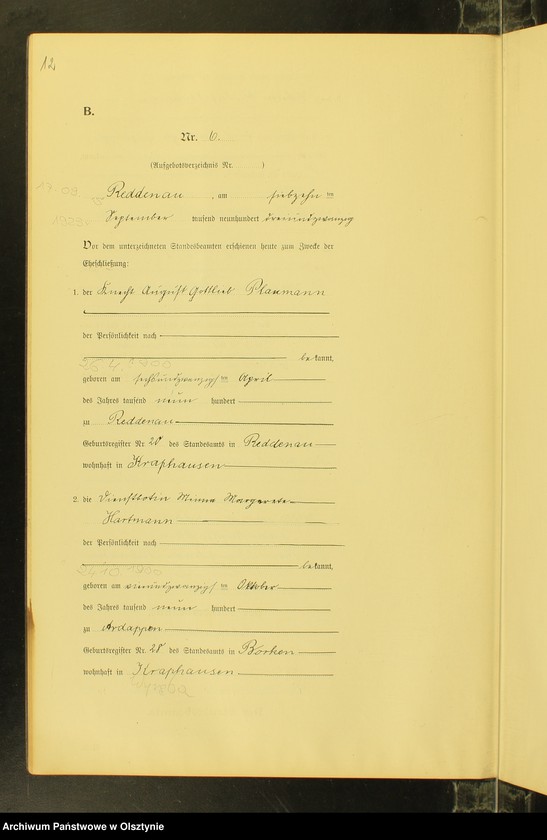 12
B.
Nr. 6.
(Aufgebotsverzeichnis Nr. )
17.09. Reddenau, am siebzehn ten
1923 September tausend neunhundert dreiundzwanzig
Vor dem unterzeichneten Standesbeamten erschienen heute zum Zwecke der
Eheschließung:
1. der Knecht August Gottlieb Plaumann
der Persönlichkeit nach
bekannt,
26.4.1900
geboren am sechsundzwanzigsten April
des Jahres tausend neun hundert
zu Reddenau
Geburtsregister Nr. 28 des Standesamts in Reddenau
wohnhaft in Kraphausen
2. die Dienstbotin Minna Margarete
Hartmann
der Persönlichkeit nach
bekannt,
10.1900
geboren am ten Oktober
des Jahres tausend neun hundert
zu Ardappen
Geburtsregister Nr. 28 des Standesamts in Borken
wohnhaft in Kraphausen
Archiwum Państwowe w Olsztynie